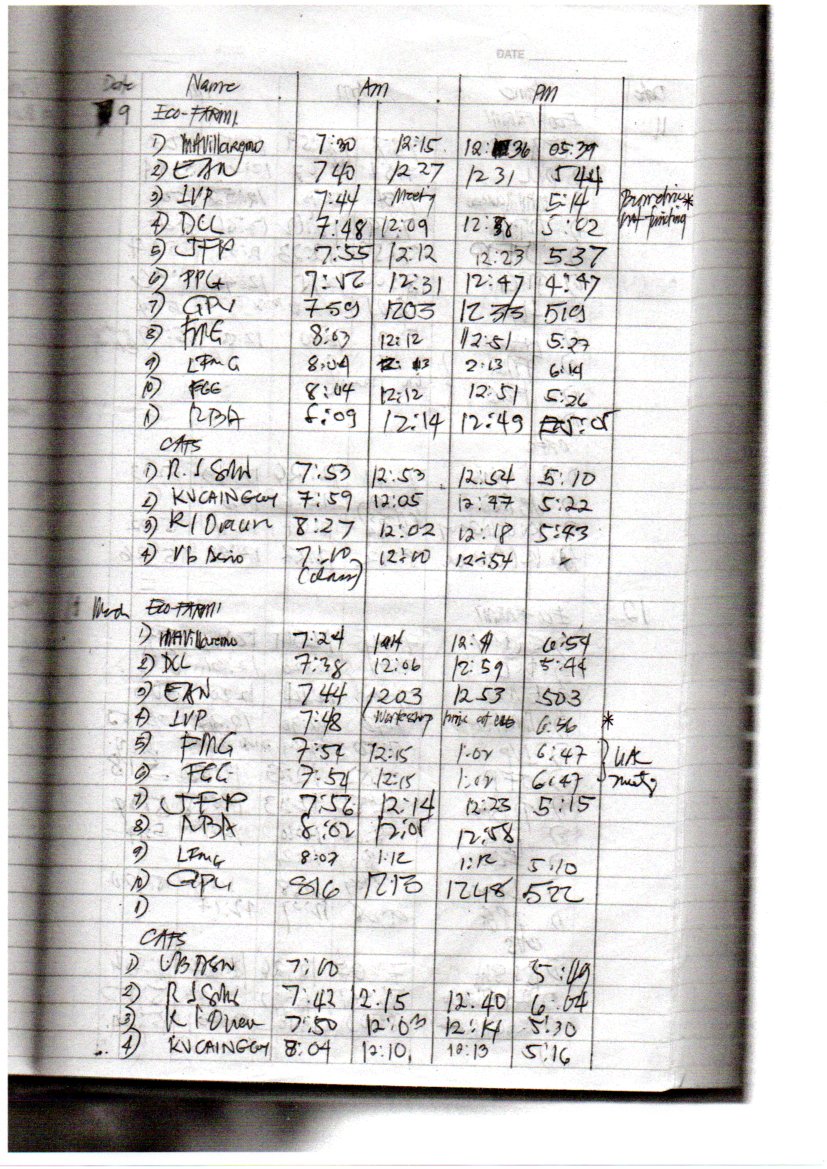 DATE
Date Name Am PM
9 ECO-FARMI
1) MAVillaremo 7:30 12:15 12:36 05:39
2) EAN 740 1227 1231 544
3) IVP 7:44 Meeting 5:14 Biometric *
4) DCL 7:48 12:09 12:38 5:02 not functing
5) JFP 7:55 12:12 12:23 537
6) PPG 7:56 12:31 12:47 4:47
7) GPU 759 1203 1233 519
8) FMG 8:03 12:12 12:51 5:27
9) LFMG 8:04 2:13 6:14
10) FGG 8:04 12:12 12:51 5:26
11) NBA 8:09 12:14 12:49 5:05
CAFS
1) R.J 7:53 12:53 12:54 5:10
2) KVCAINGCOY 7:59 12:05 12:47 5:22
3) 8:27 12:02 12:18 5:43
4) 7:00 12:00 12:54
(class)
ECO-FARMI
1) MAVillaremo 7:24 6:54
2) DCL 7:38 12:06 12:59 5:44
3) EAN 744 1203 1253 503
4) IVP 7:48 Workshop 6:56 *
5) FMG 7:54 12:15 1:02 6:47
6) FGG 7:54 12:15 1:02 6:47 meetg
7) JFP 7:56 12:14 12:23 5:15
8) NBA 8:02 12:05 12:58
9) LFMG 8:07 1:12 1:12 5:10
10) GPU 816 1213 1248 522
11)
CAFS
1) 7:00 5:49
2) R J 7:42 12:15 12:40 6:04
3) 7:50 12:03 12:14 5:30
4) KVCAINGCOY 8:04 12:10 12:13 5:16